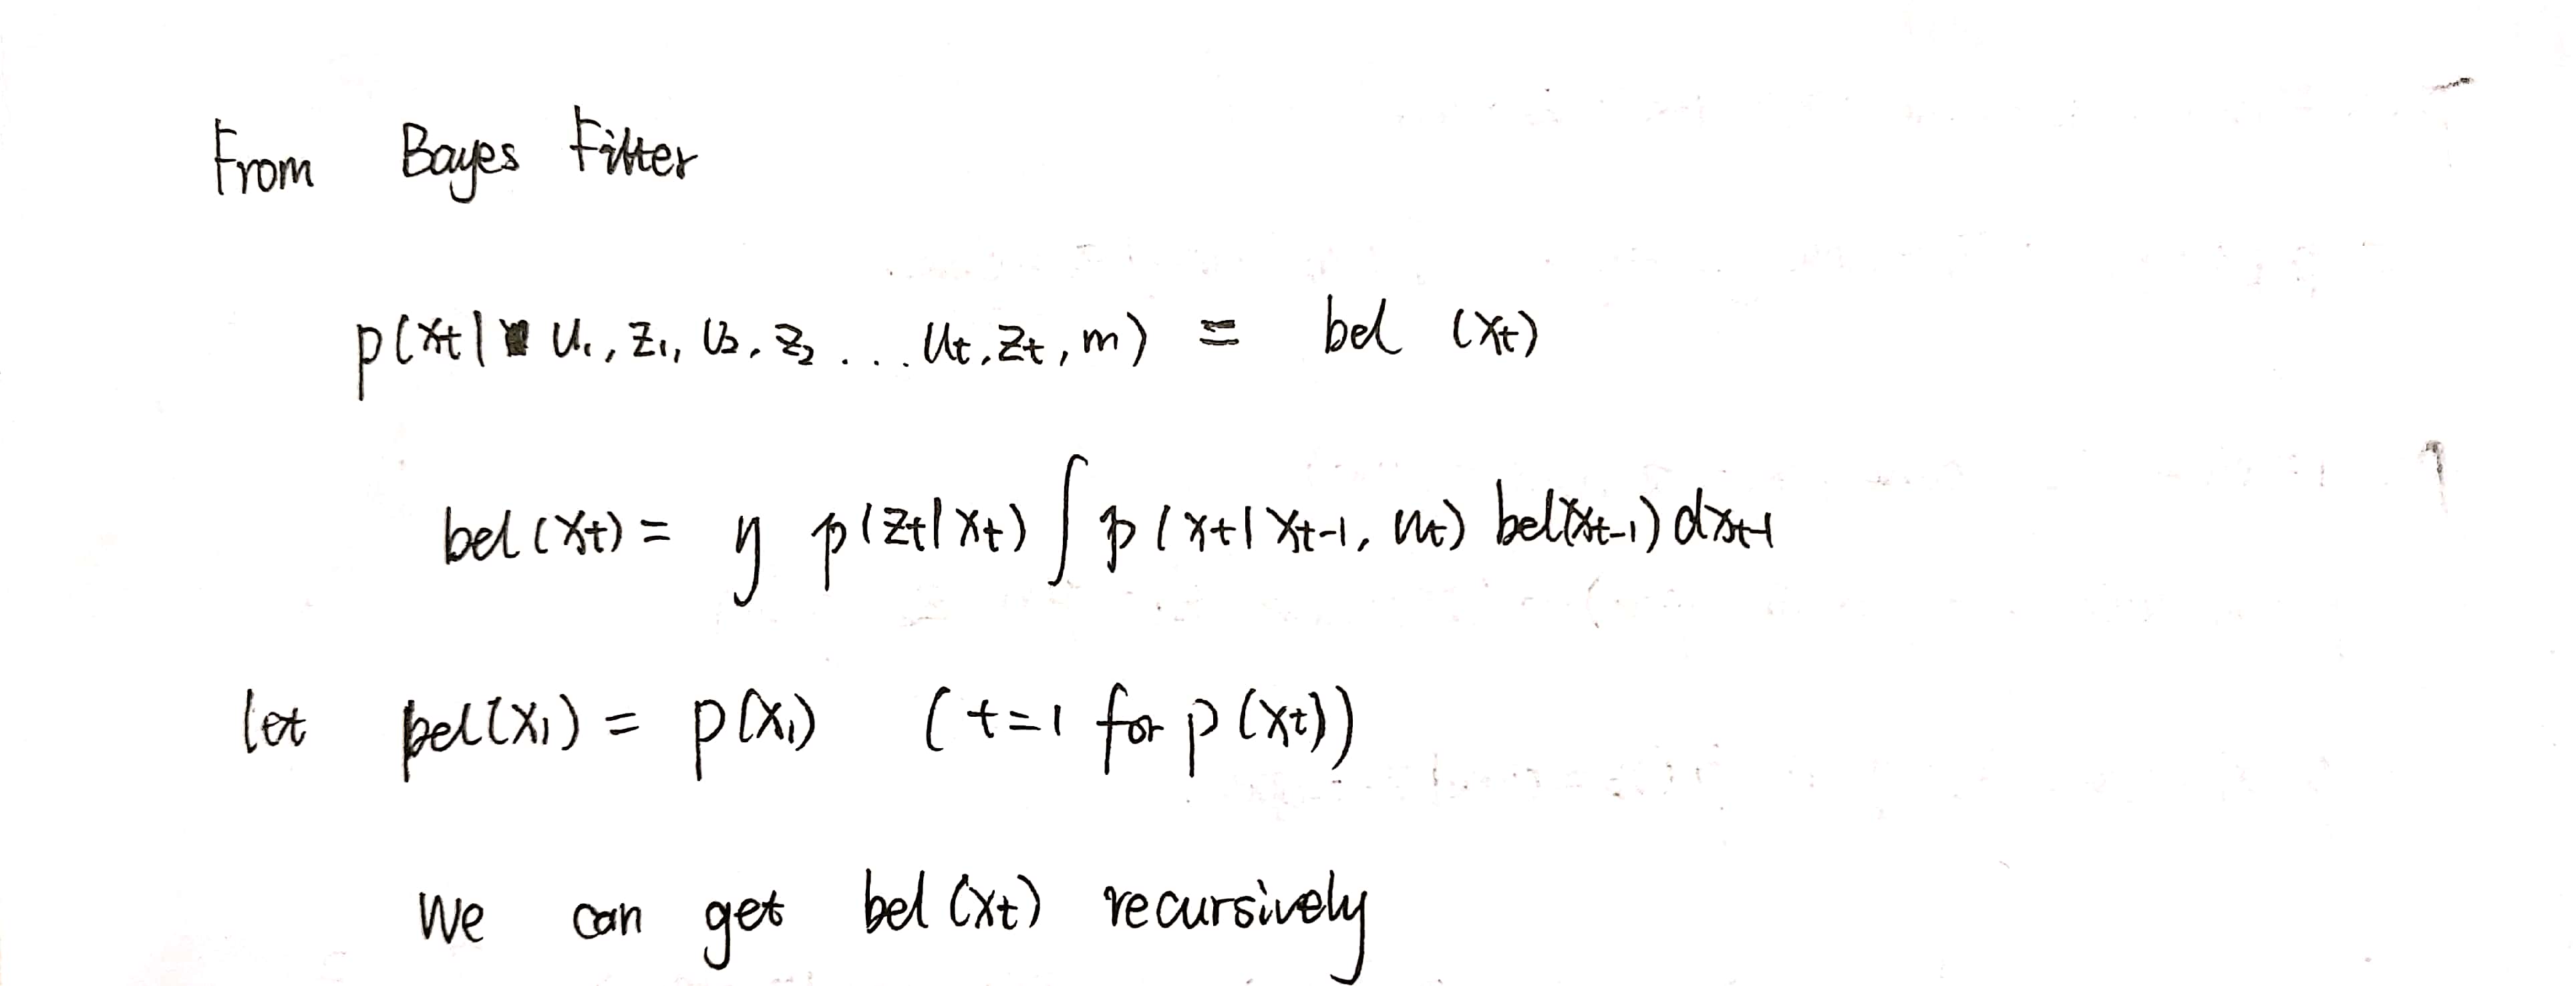 From Bayes Filter
p(xt| u1, z1, u2, z2 ... ut, zt, m) = bel (xt)
bel(xt) = y p(zt|xt) ∫ p(xt|xt-1, ut) bel(xt-1) dxt-1
let bel(x1) = p(x1) (t=1 for p(xt))
we can get bel(xt) recursively